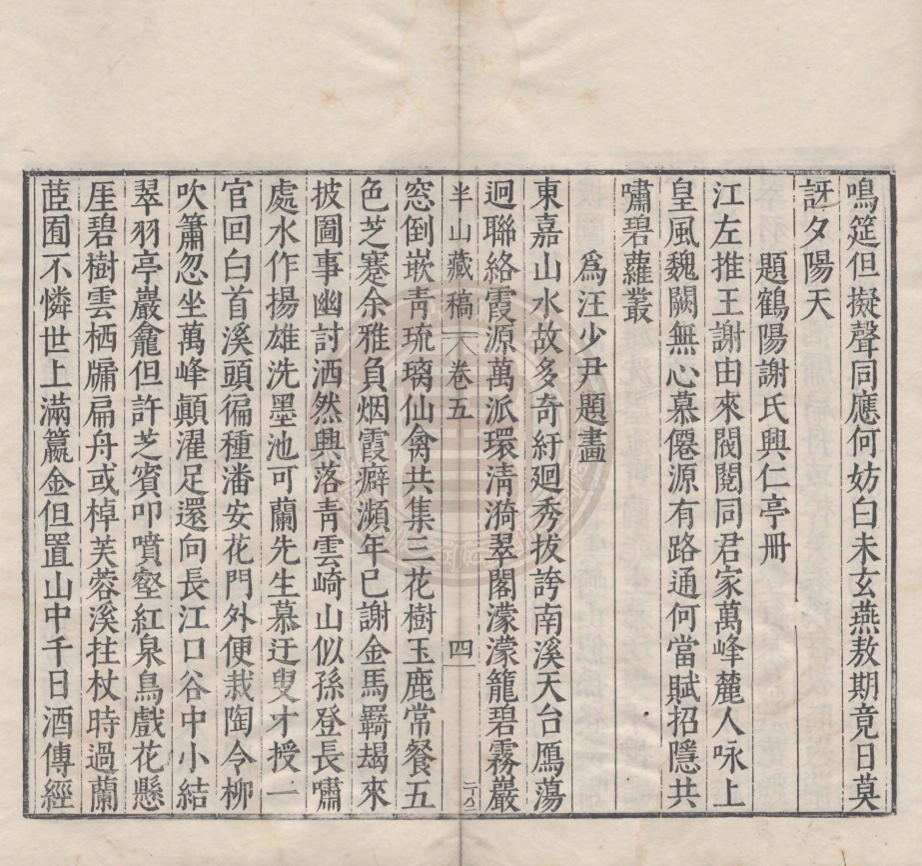 鳴筵但擬聲同應何妨白未玄燕敖期竟日莫
訝夕陽天
題鶴陽謝氏興仁亭冊
江左推王謝由來閥閱同君家萬峰麓人咏上
皇風魏闕無心慕僊源有路通何當賦招隱共
嘯碧蘿叢
為汪少尹題畫
東嘉山水故多奇紆廻秀拔誇南溪天台鴈蕩
迥聯絡霞源萬派環清漪翠閣濛濛籠碧霧巖
半山藏稿 卷五 四
窓倒嵌靑琉璃仙禽共集三花樹玉鹿常餐五
色芝蹇余雅負烟霞癖瀕年已謝金馬羈朅來
披圖事幽討洒然興落靑雲崎山似孫登長嘯
處水作揚雄洗墨池可蘭先生慕迂叟才授一
官回白首溪頭徧種潘安花門外便栽陶令柳
吹簫忽坐萬峰顛濯足還向長江口谷中小結
翠羽亭巖龕但許芝賓叩噴壑紅泉鳥戲花懸
厓碧樹雲栖牖扁舟或棹芙蓉溪拄杖時過蘭
茝囿不憐世上滿籯金但置山中千日酒傳經